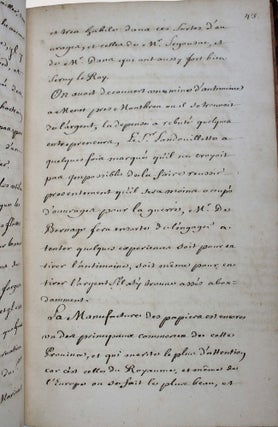 43
et tres habile dans ces sortes d'ou
urages, et celles du Mr. Segousne, et
du Mr. Dana que ont aussy fort bien
seruy le Roy.
On auoit decouuert une mine d'antimoine
a Menet pres Montbron ou il se trouuoit
de l'argent, la depense a rebuté quelques
entrepreneurs, Le Sr. Landouillette a
quelques fois marqué qu'il ne croyoit
pas impossible de la faire reussir
presentement qu'il sera moins occupé
d'ouurages pour la guerre, Mr. De
Bernage fera ensorte de l'engager a
tenter quelques experiences soit pour en
tirer l'antimoine, soit même pour en
tirer l'argent s'il s'y trouue assés abon-
damment.
La Manufacture des papiers est encores
un des principaux commerces de cette
Prouince, et qui merite le plus d'attention
car c'est celle du Royaume, et mêmes de
l'Europe ou se fait le plus beau, et